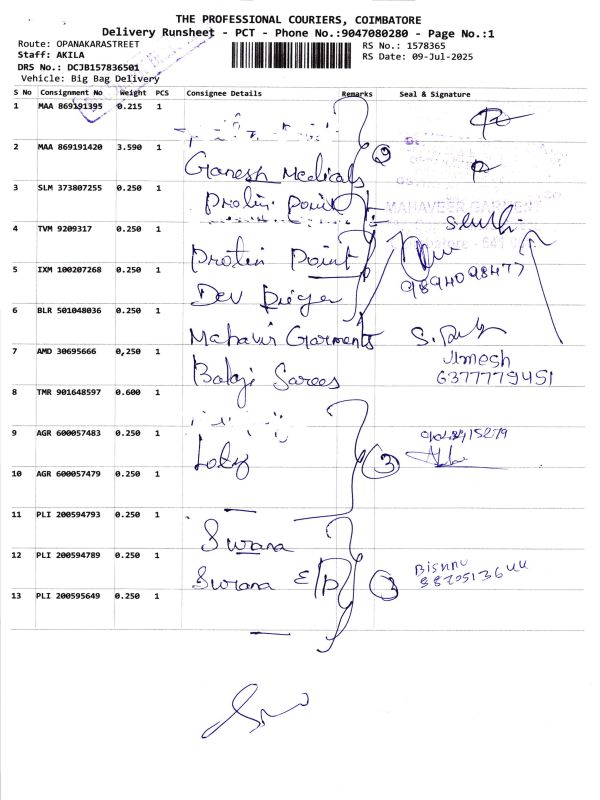 THE PROFESSIONAL COURIERS, COIMBATORE
Delivery Runsheet - PCT - Phone No.:9047080280 - Page No.:1
Route: OPANAKARASTREET
RS No.: 1578365
Staff: AKILA
RS Date: 09-Jul-2025
DRS No.: DCJB157836501
Vehicle: Big Bag Delivery
S No Consignment No Weight PCS Consignee Details Remarks Seal & Signature
1 MAA 869191395 0.215 1
2 MAA 869191420 3.590 1 Ganesh Medicals 2
3 SLM 373807255 0.250 1 Protin Point
MAHAVEER GARMEN
4 TVM 9209317 0.250 1 Protin Point
9894098477
5 IXM 100207268 0.250 1 Dev
6 BLR 501048036 0.250 1 Mahavir Garments
7 AMD 30695666 0,250 1 Balaji Sarees
Jimesh
6377779451
8 TMR 901648597 0.600 1
9 AGR 600057483 0.250 1
3
10 AGR 600057479 0.250 1
11 PLI 200594793 0.250 1 Swarna
12 PLI 200594789 0.250 1 Swarna E/p 3
Bishnu
13 PLI 200595649 0.250 1